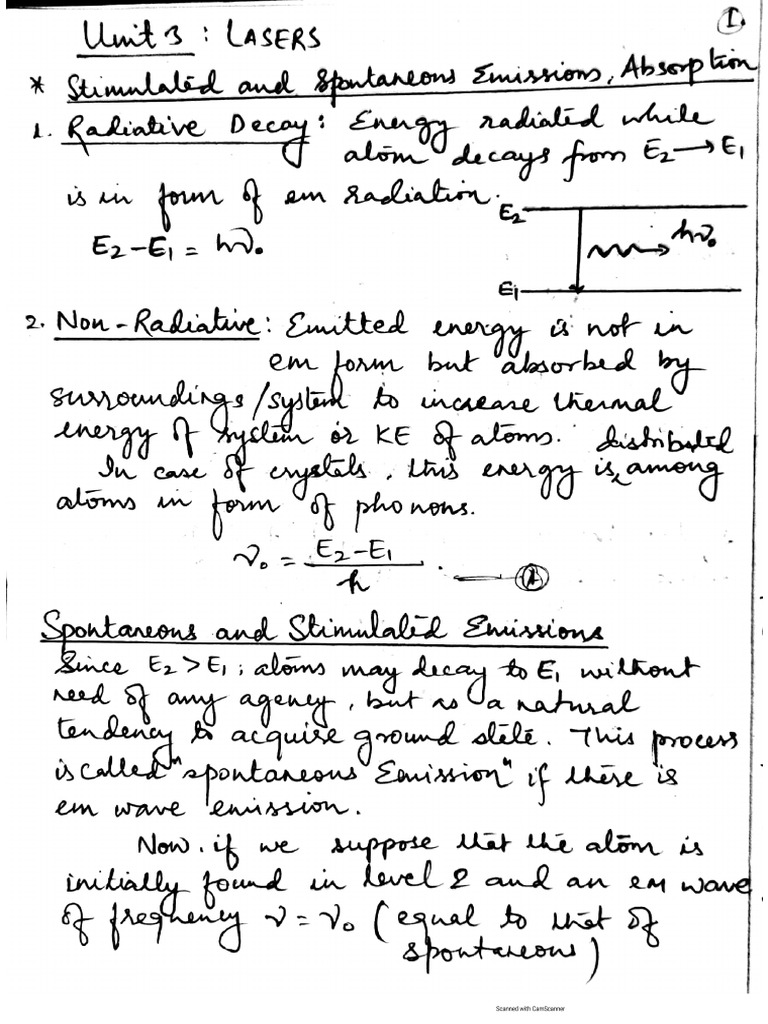 1.
Unit 3 : LASERS
* Stimulated and Spontaneous Emissions, Absorption
1. Radiative Decay : Energy radiated while
atom decays from E₂ → E₁
is in form of em radiation.
E₂ – E₁ = hν₀
E₂
hν₀
E₁
2. Non-Radiative : Emitted energy is not in
em form but absorbed by
surroundings/system to increase thermal
energy of system or KE of atoms.
In case of crystals, this energy is distributed among
atoms in form of phonons.
ν₀ = E₂ – E₁ / h . — (1)
Spontaneous and Stimulated Emissions
Since E₂ > E₁ ; atoms may decay to E₁ without
need of any agency, but as a natural
tendency to acquire ground state. This process
is called "spontaneous Emission" if there is
em wave emission.
Now, if we suppose that the atom is
initially found in level 2 and an em wave
of frequency ν = ν₀ (equal to that of
spontaneous)
Scanned with CamScanner